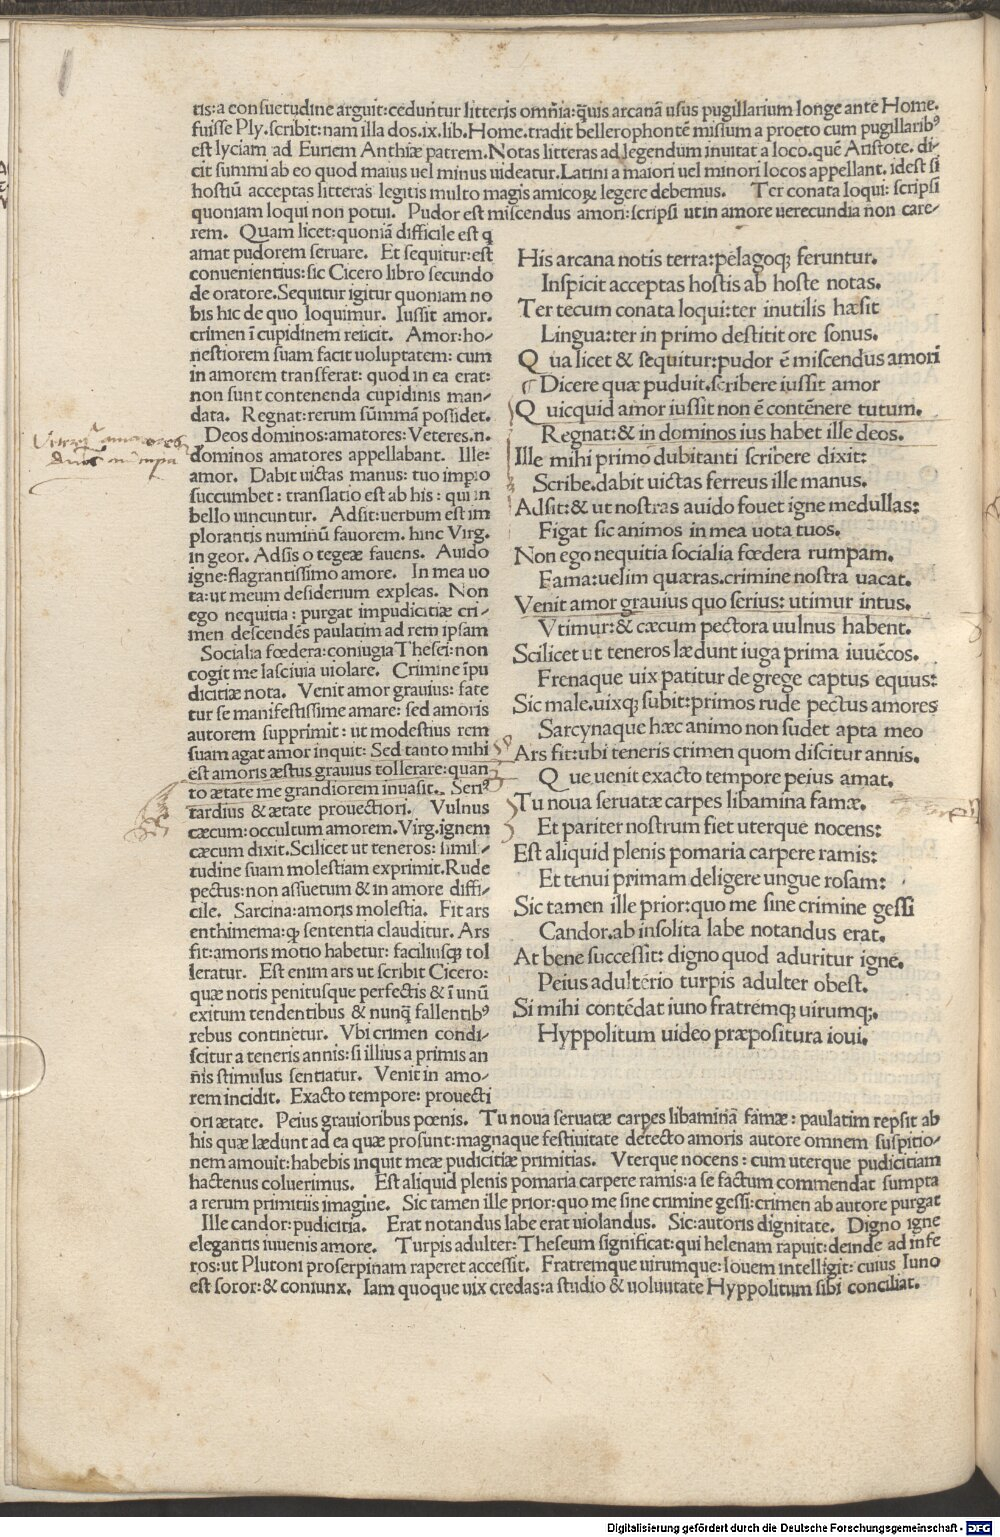 tis:a consuetudine arguit:ceduntur litteris omn̄ia:q̄uis arcanā usus pugillarium longe ante Home.
fuisse Ply.scribit:nam illa dos.ix.lib.Home.tradit bellerophontē missum a proeto cum pugillaribꝰ
est lyciam ad Euriem Anthiæ patrem.Notas litteras ad legendum inuitat a loco.quē Aristote.di-
cit summi ab eo quod maius uel minus uideatur.Latini a maiori uel minori locos appellant.idest si
hostiū acceptas litteras legitis multo magis amicoꝝ legere debemus. Ter conata loqui: scripsi
quoniam loqui non potui. Pudor est miscendus amori:scripsi ut in amore uerecundia non care-
rem. Quam licet:quoniā difficile est q
amat pudorem seruare. Et sequitur:est
conuenientius:sic Cicero libro secundo
de oratore.Sequitur igitur quoniam no
bis hic de quo loquimur. Iussit amor.
crimen ī cupidinem reiicit. Amor:ho-
nestiorem suam facit uoluptatem: cum
in amorem transferat: quod in ea erat:
non sunt contenenda cupidinis man-
data. Regnat:rerum sūmmā possidet.
Deos dominos:amatores:Veteres.n.
dominos amatores appellabant. Ille:
amor. Dabit uictas manus: tuo impio
succumbet: translatio est ab his: qui in
bello uincuntur. Adsit:uerbum est im
plorantis numinū fauorem. hinc Virg.
in geor. Adsis o tegeæ fauens. Auido
igne:flagrantissimo amore. In mea uo
ta:ut meum desiderium expleas. Non
ego nequitia: purgat impudicitiæ cri-
men descendēs paulatim ad rem ipsam
Socialia fœdera:coniugia Thesei:non
cogit me lasciuia uiolare. Crimine īpu
dicitiæ nota. Venit amor grauius: fate
tur se manifestissime amare: sed amoris
autorem supprimit: ut modestius rem
suam agat amor inquit: Sed tanto mihi
est amoris æstus grauius tollerare:quan
to ætate me grandiorem inuasit. Seriꝰ
tardius & ætate prouectiori. Vulnus
cæcum:occultum amorem.Virg.ignem
cæcum dixit.Scilicet ut teneros: simil-
tudine suam molestiam exprimit.Rude
pectus:non assuetum & in amore diffi-
cile. Sarcina:amoris molestia. Fit ars
enthimema:ꝙ sententia clauditur. Ars
fit:amoris motio habetur: faciliusꝗ tol
leratur. Est enim ars ut scribit Cicero:
quæ notis penitusque perfectis & ī unū
exitum tendentibus & nunq̄ fallentibꝰ
rebus continetur. Vbi crimen condi-
scitur a teneris annis:si illius a primis an
n̄is stimulus sentiatur. Venit in amo-
rem incidit. Exacto tempore: prouecti
His arcana notis terra:pelagoqꝫ feruntur.
Inspicit acceptas hostis ab hoste notas.
Ter tecum conata loqui:ter inutilis hæsit
Lingua:ter in primo destitit ore sonus.
Q ua licet & sequitur:pudor ē miscendus amori
Dicere quæ puduit.scribere iussit amor
Q uicquid amor iussit non ē contēnere tutum.
Regnat:& in dominos ius habet ille deos.
Ille mihi primo dubitanti scribere dixit:
Scribe.dabit uictas ferreus ille manus.
Adsit:& ut nostras auido fouet igne medullas:
Figat sic animos in mea uota tuos.
Non ego nequitia socialia fœdera rumpam.
Fama:uelim quæras.crimine nostra uacat.
Venit amor grauius quo serius: utimur intus.
Vtimur:& cæcum pectora uulnus habent.
Scilicet ut teneros lædunt iuga prima iuuēcos.
Frenaque uix patitur de grege captus equus:
Sic male.uixqꝫ subit:primos rude pectus amores
Sarcynaque hæc animo non sudet apta meo
Ars fit:ubi teneris crimen quom discitur annis.
Q ue uenit exacto tempore peius amat.
Tu noua seruatæ carpes libamina famæ.
Et pariter nostrum fiet uterque nocens:
Est aliquid plenis pomaria carpere ramis:
Et tenui primam deligere ungue rosam:
Sic tamen ille prior:quo me sine crimine gessi
Candor.ab insolita labe notandus erat.
At bene successit: digno quod aduritur igne.
Peius adulterio turpis adulter obest.
Si mihi contēdat iuno fratremqꝫ uirumqꝫ.
Hyppolitum uideo præpositura ioui.
ori ætate. Peius grauioribus pœnis. Tu noua seruatæ carpes libaminā famæ: paulatim repsit ab
his quæ lædunt ad ea quæ prosunt:magnaque festiuitate detecto amoris autore omnem suspitio-
nem amouit:habebis inquit meæ pudicitiæ primitias. Vterque nocens: cum uterque pudicitiam
hactenus coluerimus. Est aliquid plenis pomaria carpere ramis:a se factum commendat sumpta
a rerum primitiis imagine. Sic tamen ille prior:quo me sine crimine gessi:crimen ab autore purgat
Ille candor:pudicitia. Erat notandus labe erat uiolandus. Sic:autoris dignitate. Digno igne
elegantis iuuenis amore. Turpis adulter:Theseum significat:qui helenam rapuit:deinde ad infe
ros:ut Plutoni proserpinam raperet accessit. Fratremque uirumque:Iouem intelligit: cuius Iuno
est soror:& coniunx. Iam quoque uix credas:a studio & uoluntate Hyppolitum sibi conciliat.
Digitalisierung gefördert durch die Deutsche Forschungsgemeinschaft - DFG